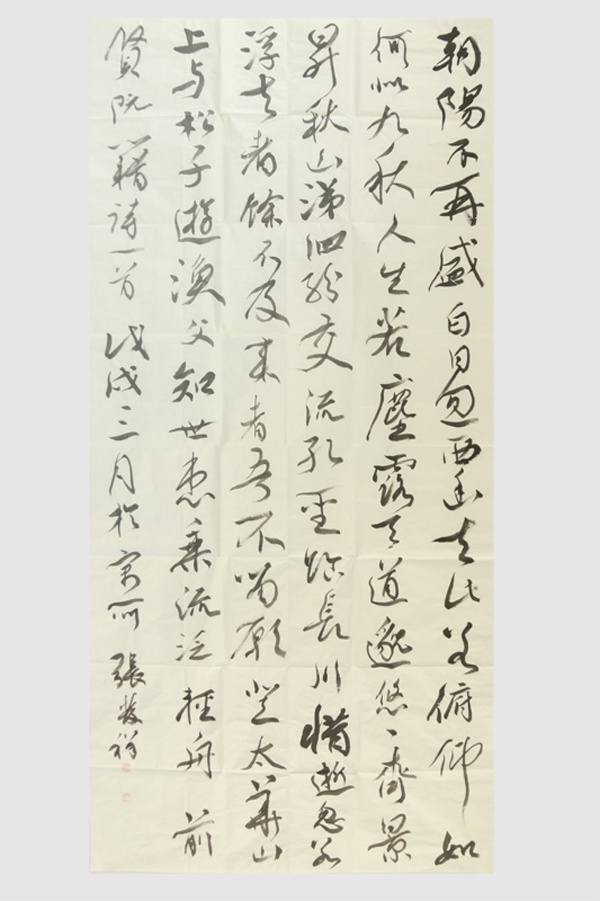 朝陽不再盛白日忽西幽去此若俯仰如
何似九秋人生若塵露天道邈悠々齊景
昇秋山涕泗紛交流孔聖臨長川惜逝忽若
浮去者餘不及來者吾不留願登太華山
上与松子遊漁父知世患乘流泛輕舟 前
賢阮籍詩一首 戊戌三月於寓所 張發祥